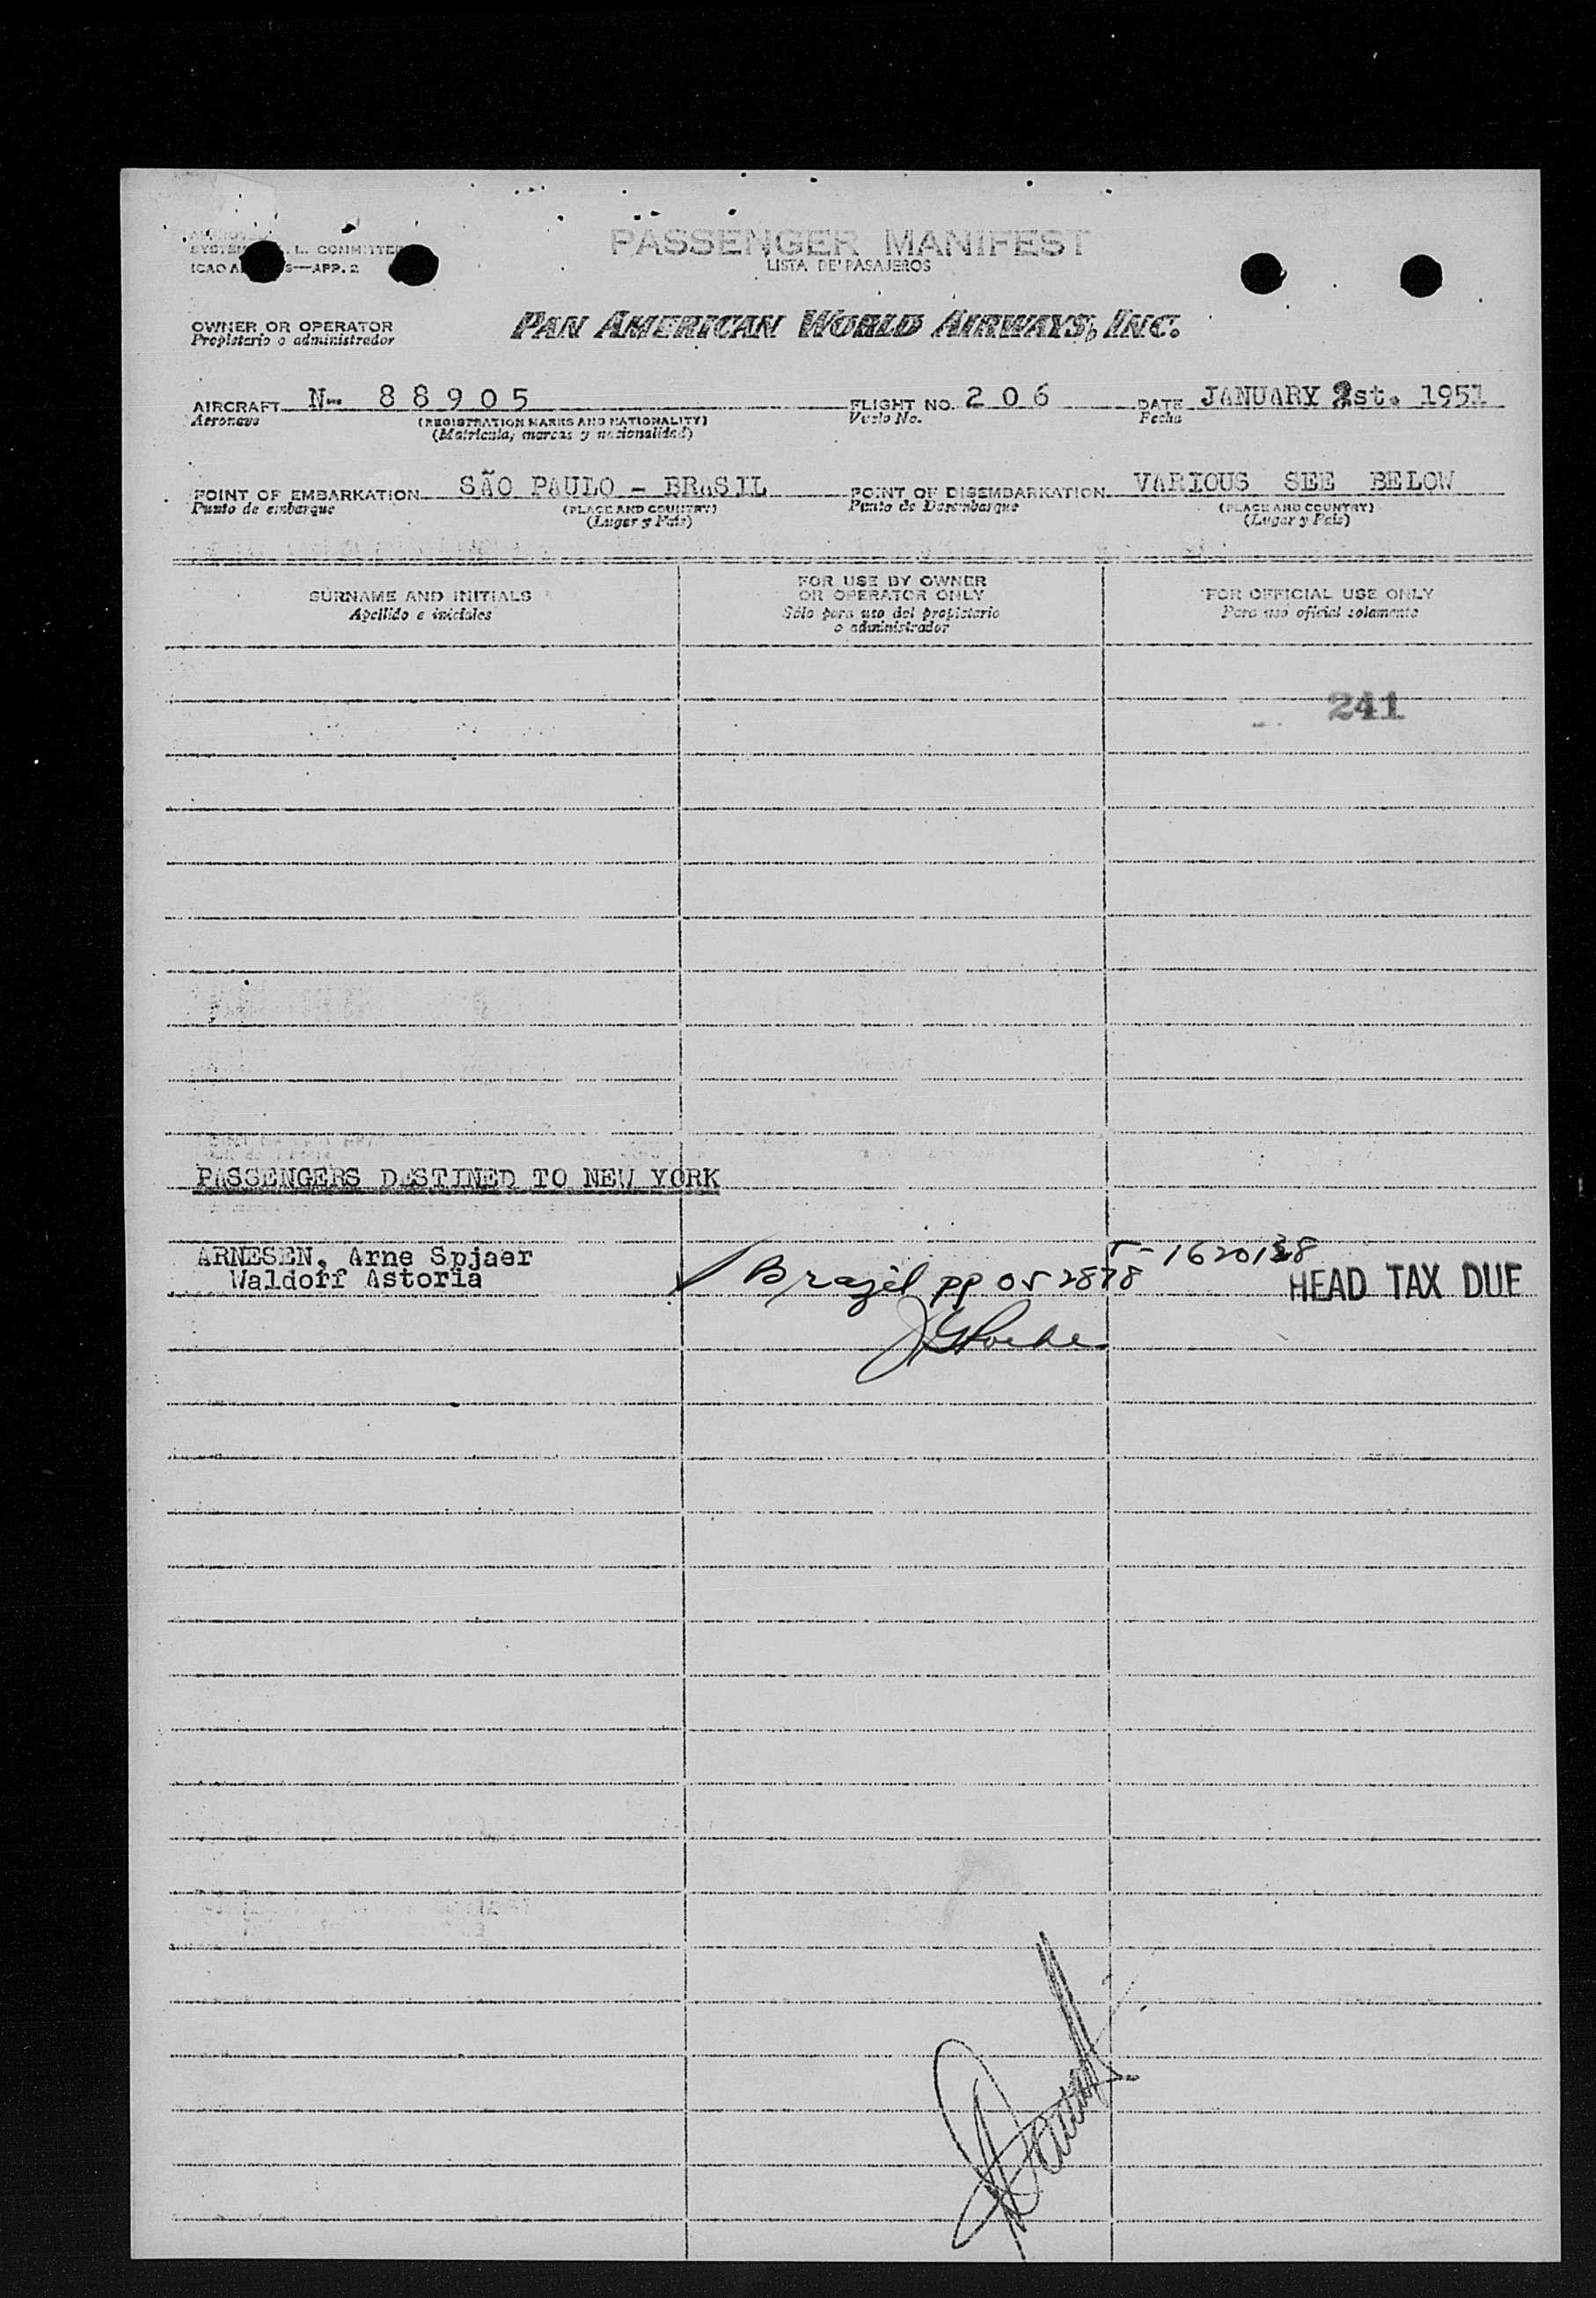 PASSENGER MANIFEST
LISTA DE PASAJEROS
L. COMMITTEE
ICAO
APP. 2
OWNER OR OPERATOR
Propietario o administrador
PAN AMERICAN WORLD AIRWAYS, INC.
AIRCRAFT N- 88905 FLIGHT NO. 206 DATE JANUARY 2st. 1951
Aeronave (REGISTRATION MARKS AND NATIONALITY) Vuelo No. Fecha
(Matricula, marcas y nacionalidad)
POINT OF EMBARKATION SÃO PAULO - BRASIL POINT OF DISEMBARKATION VARIOUS SEE BELOW
Punto de embarque (PLACE AND COUNTRY) Punto de Desembarque (PLACE AND COUNTRY)
(Lugar y País) (Lugar y País)
SURNAME AND INITIALS
Apellido e iniciales
FOR USE BY OWNER
OR OPERATOR ONLY
Sólo para uso del propietario
o administrador
FOR OFFICIAL USE ONLY
Para uso oficial solamente
241
PASSENGERS DESTINED TO NEW YORK
ARNESEN, Arne Spjaer
Waldoff Astoria
Brazil pp 052878
HEAD TAX DUE